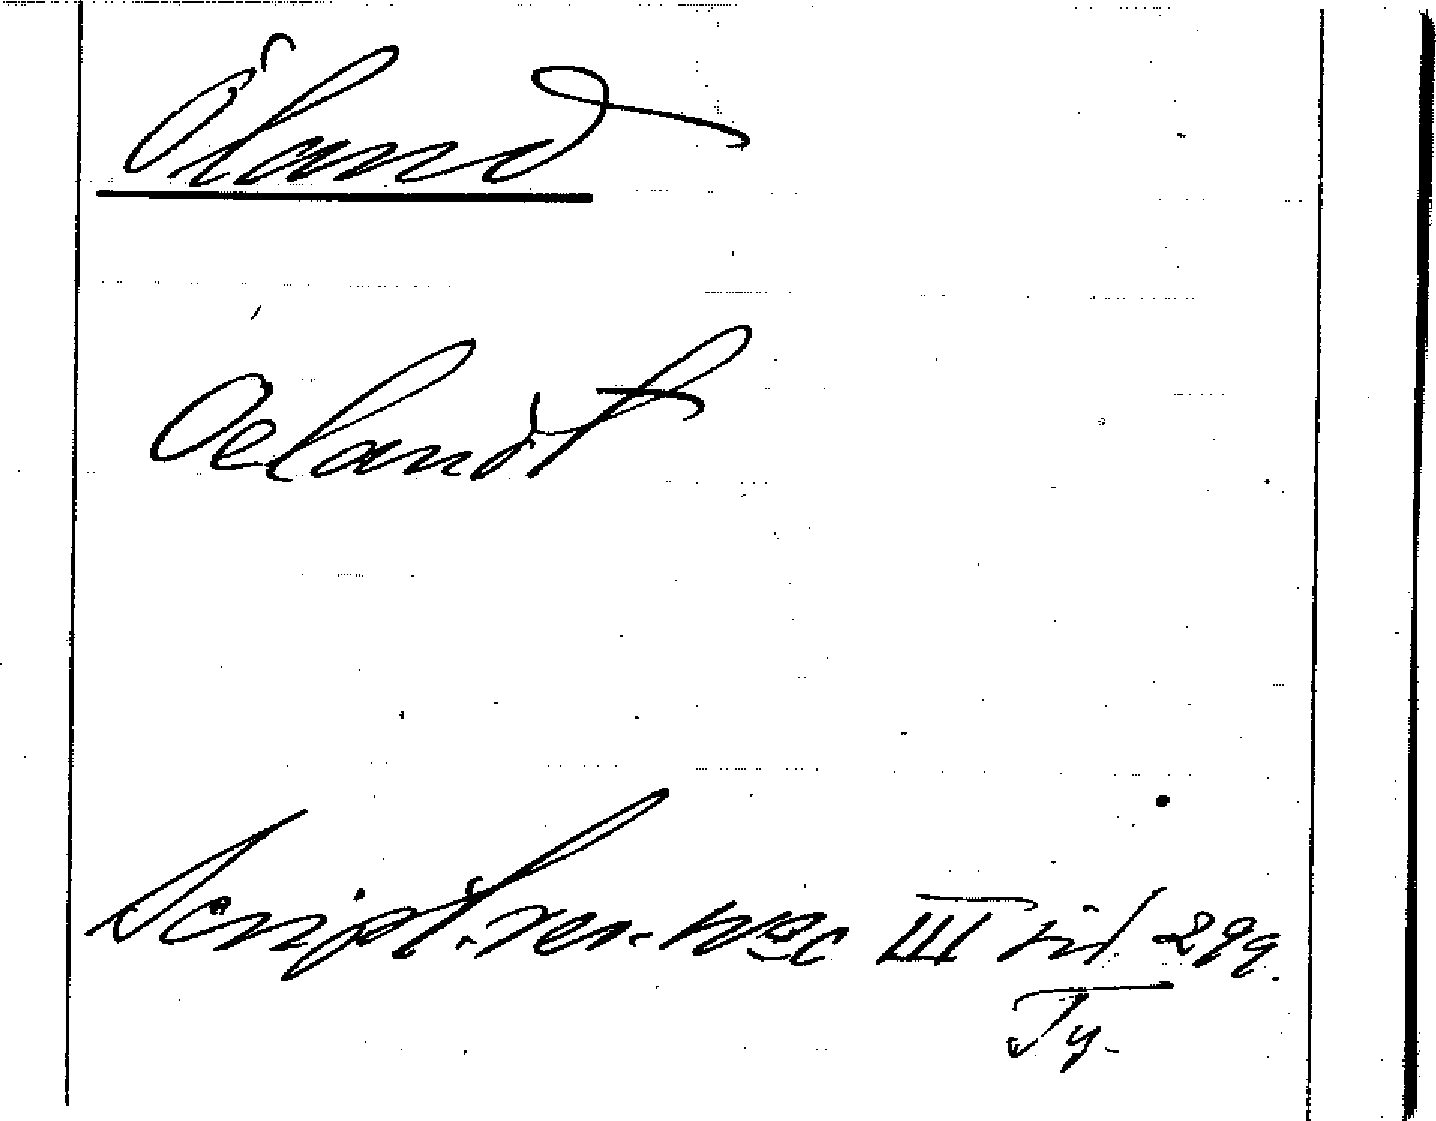 Öland
Oelandt
Script. rer. svec III sid 299.
Ty.